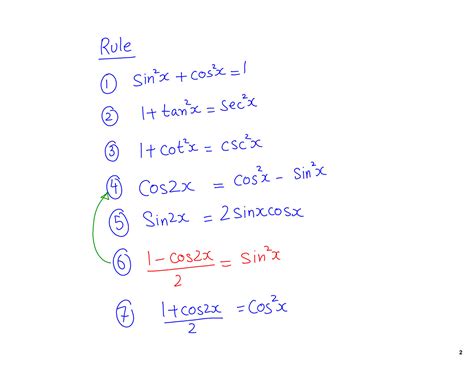 Rule
① Sin²x + cos²x = 1
② 1 + tan²x = Sec²x
③ 1 + cot²x = csc²x
④ Cos2x = cos²x - sin²x
⑤ Sin2x = 2sinxcosx
⑥ (1 - cos2x)/2 = Sin²x
⑦ (1 + cos2x)/2 = Cos²x
2